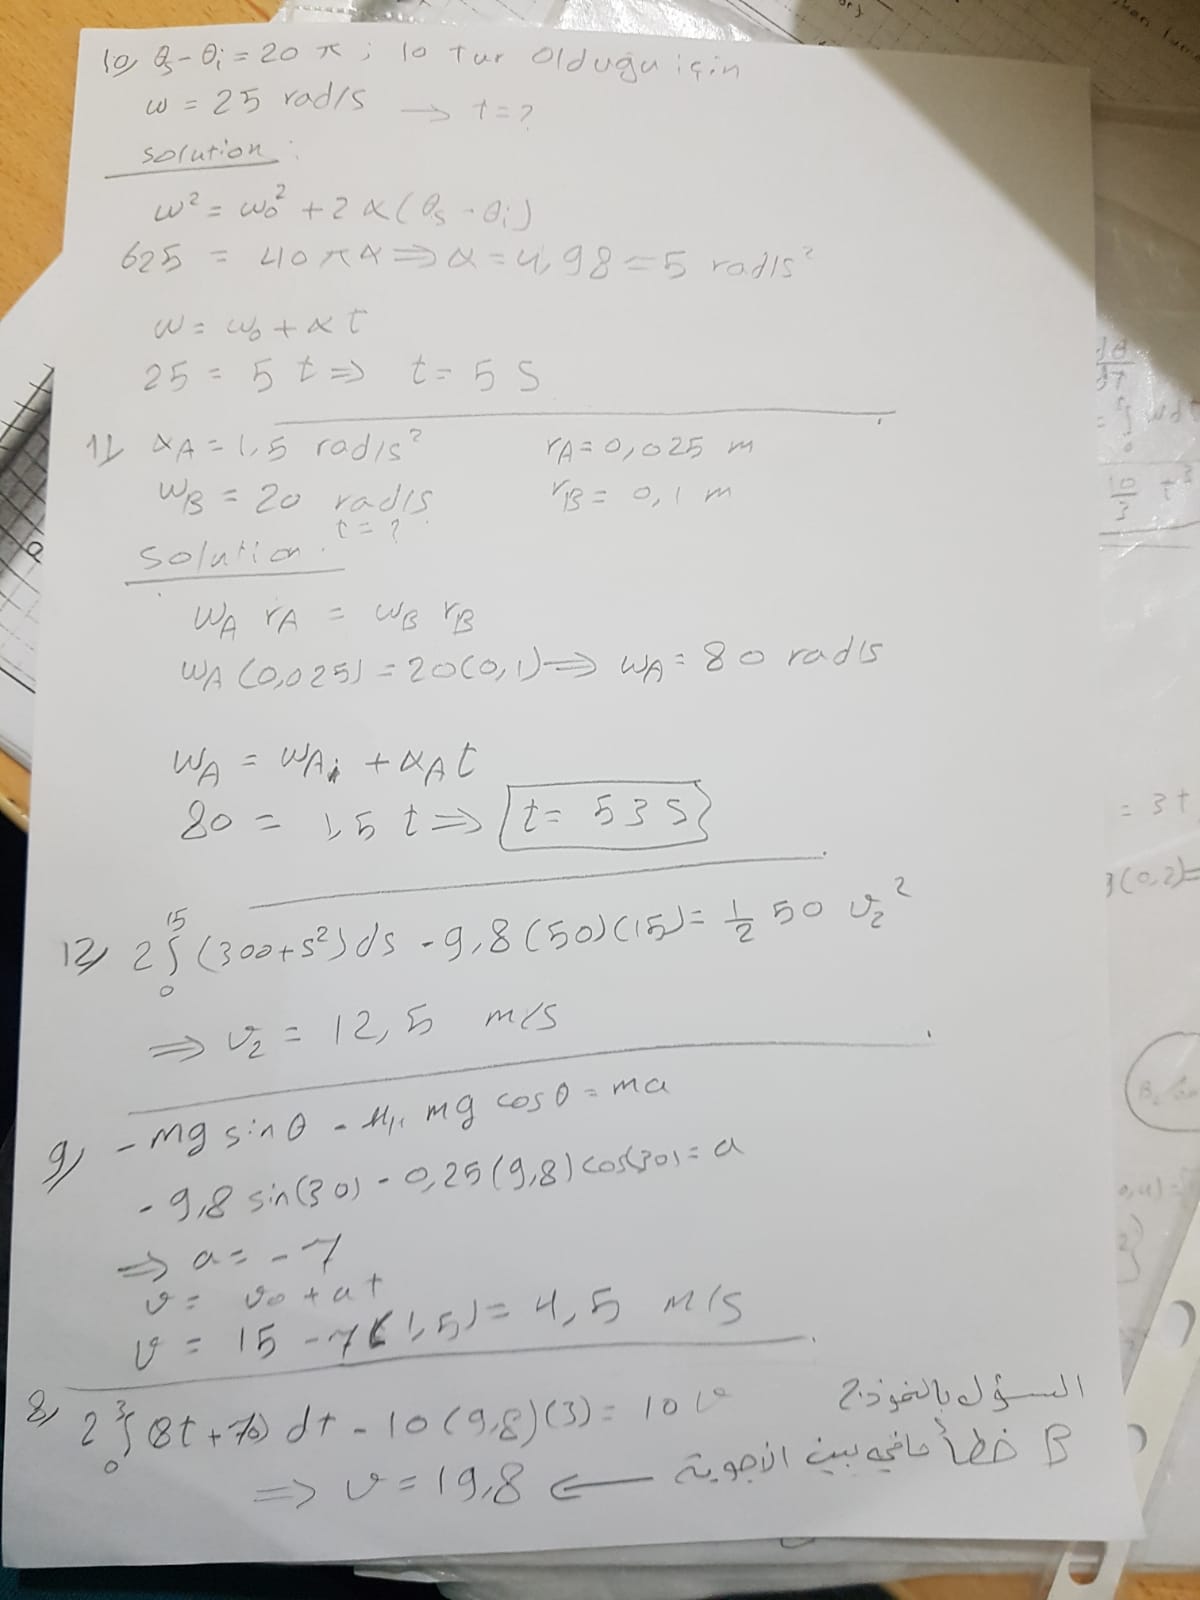 10) θs - θi = 20 π ; 10 Tur Olduğu için
ω = 25 rad/s → t = ?
solution :
ω² = ω₀² + 2 α (θs - θi)
625 = 40 π α ⇒ α = 4,98 = 5 rad/s²
ω = ω₀ + α t
25 = 5 t ⇒ t = 5 S
11) αA = 1,5 rad/s² rA = 0,025 m
ωB = 20 rad/s rB = 0,1 m
t = ?
Solution .
ωA rA = ωB rB
ωA (0,025) = 20(0,1) ⇒ ωA = 80 rad/s
ωA = ωAi + αA t
80 = 1,5 t ⇒ t = 53 S
12) 2 ∫₀¹⁵ (300 + s²) ds - 9,8 (50) (15) = ½ 50 v₂²
⇒ v₂ = 12,5 m/s
9) - mg sin θ - μk mg cos θ = ma
- 9,8 sin(30) - 0,25 (9,8) cos(30) = a
⇒ a = - 7
v = v₀ + at
v = 15 - 7(1,5) = 4,5 m/s
8) 2 ∫₀³ (8t + 70) dt - 10 (9,8) (3) = 10 v
السؤل بالنموذج
⇒ v = 19,8 ← B خطأ مافي بين الأجوبة
dθ
10/3 t³
= 3t
3(0,2) =